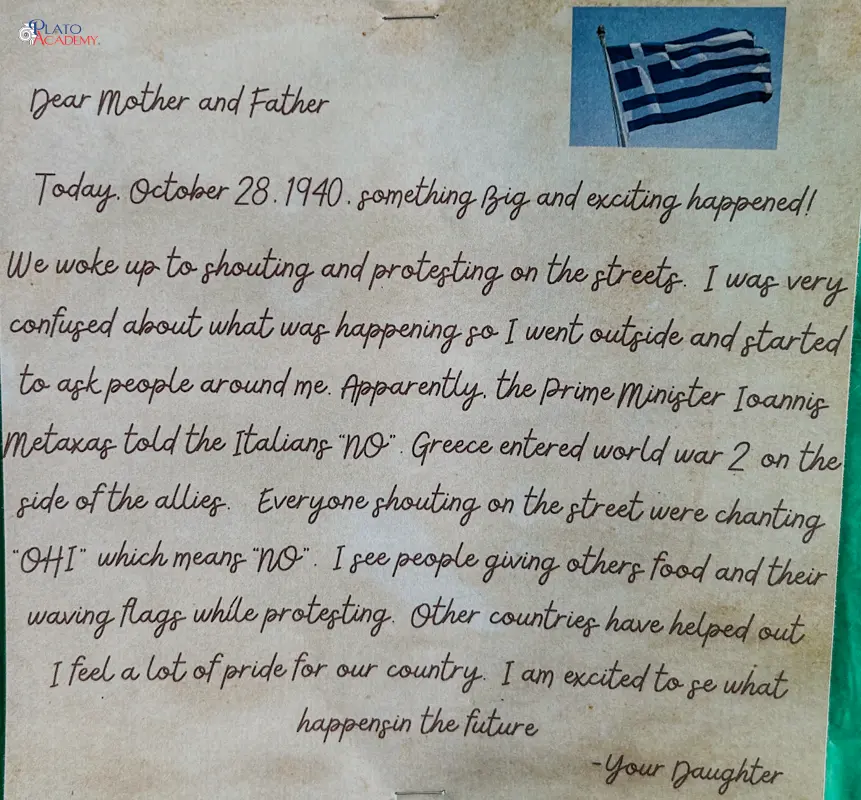 PLATO
ACADEMY.
Dear Mother and Father
Today, October 28, 1940, something Big and exciting happened!
We woke up to shouting and protesting on the streets. I was very
confused about what was happening so I went outside and started
to ask people around me. Apparently, the Prime Minister Ioannis
Metaxas told the Italians "NO". Greece entered world war 2 on the
side of the allies. Everyone shouting on the street were chanting
"OHI" which means "NO". I see people giving others food and their
waving flags while protesting. Other countries have helped out
I feel a lot of pride for our country. I am excited to se what
happensin the future
-Your Daughter